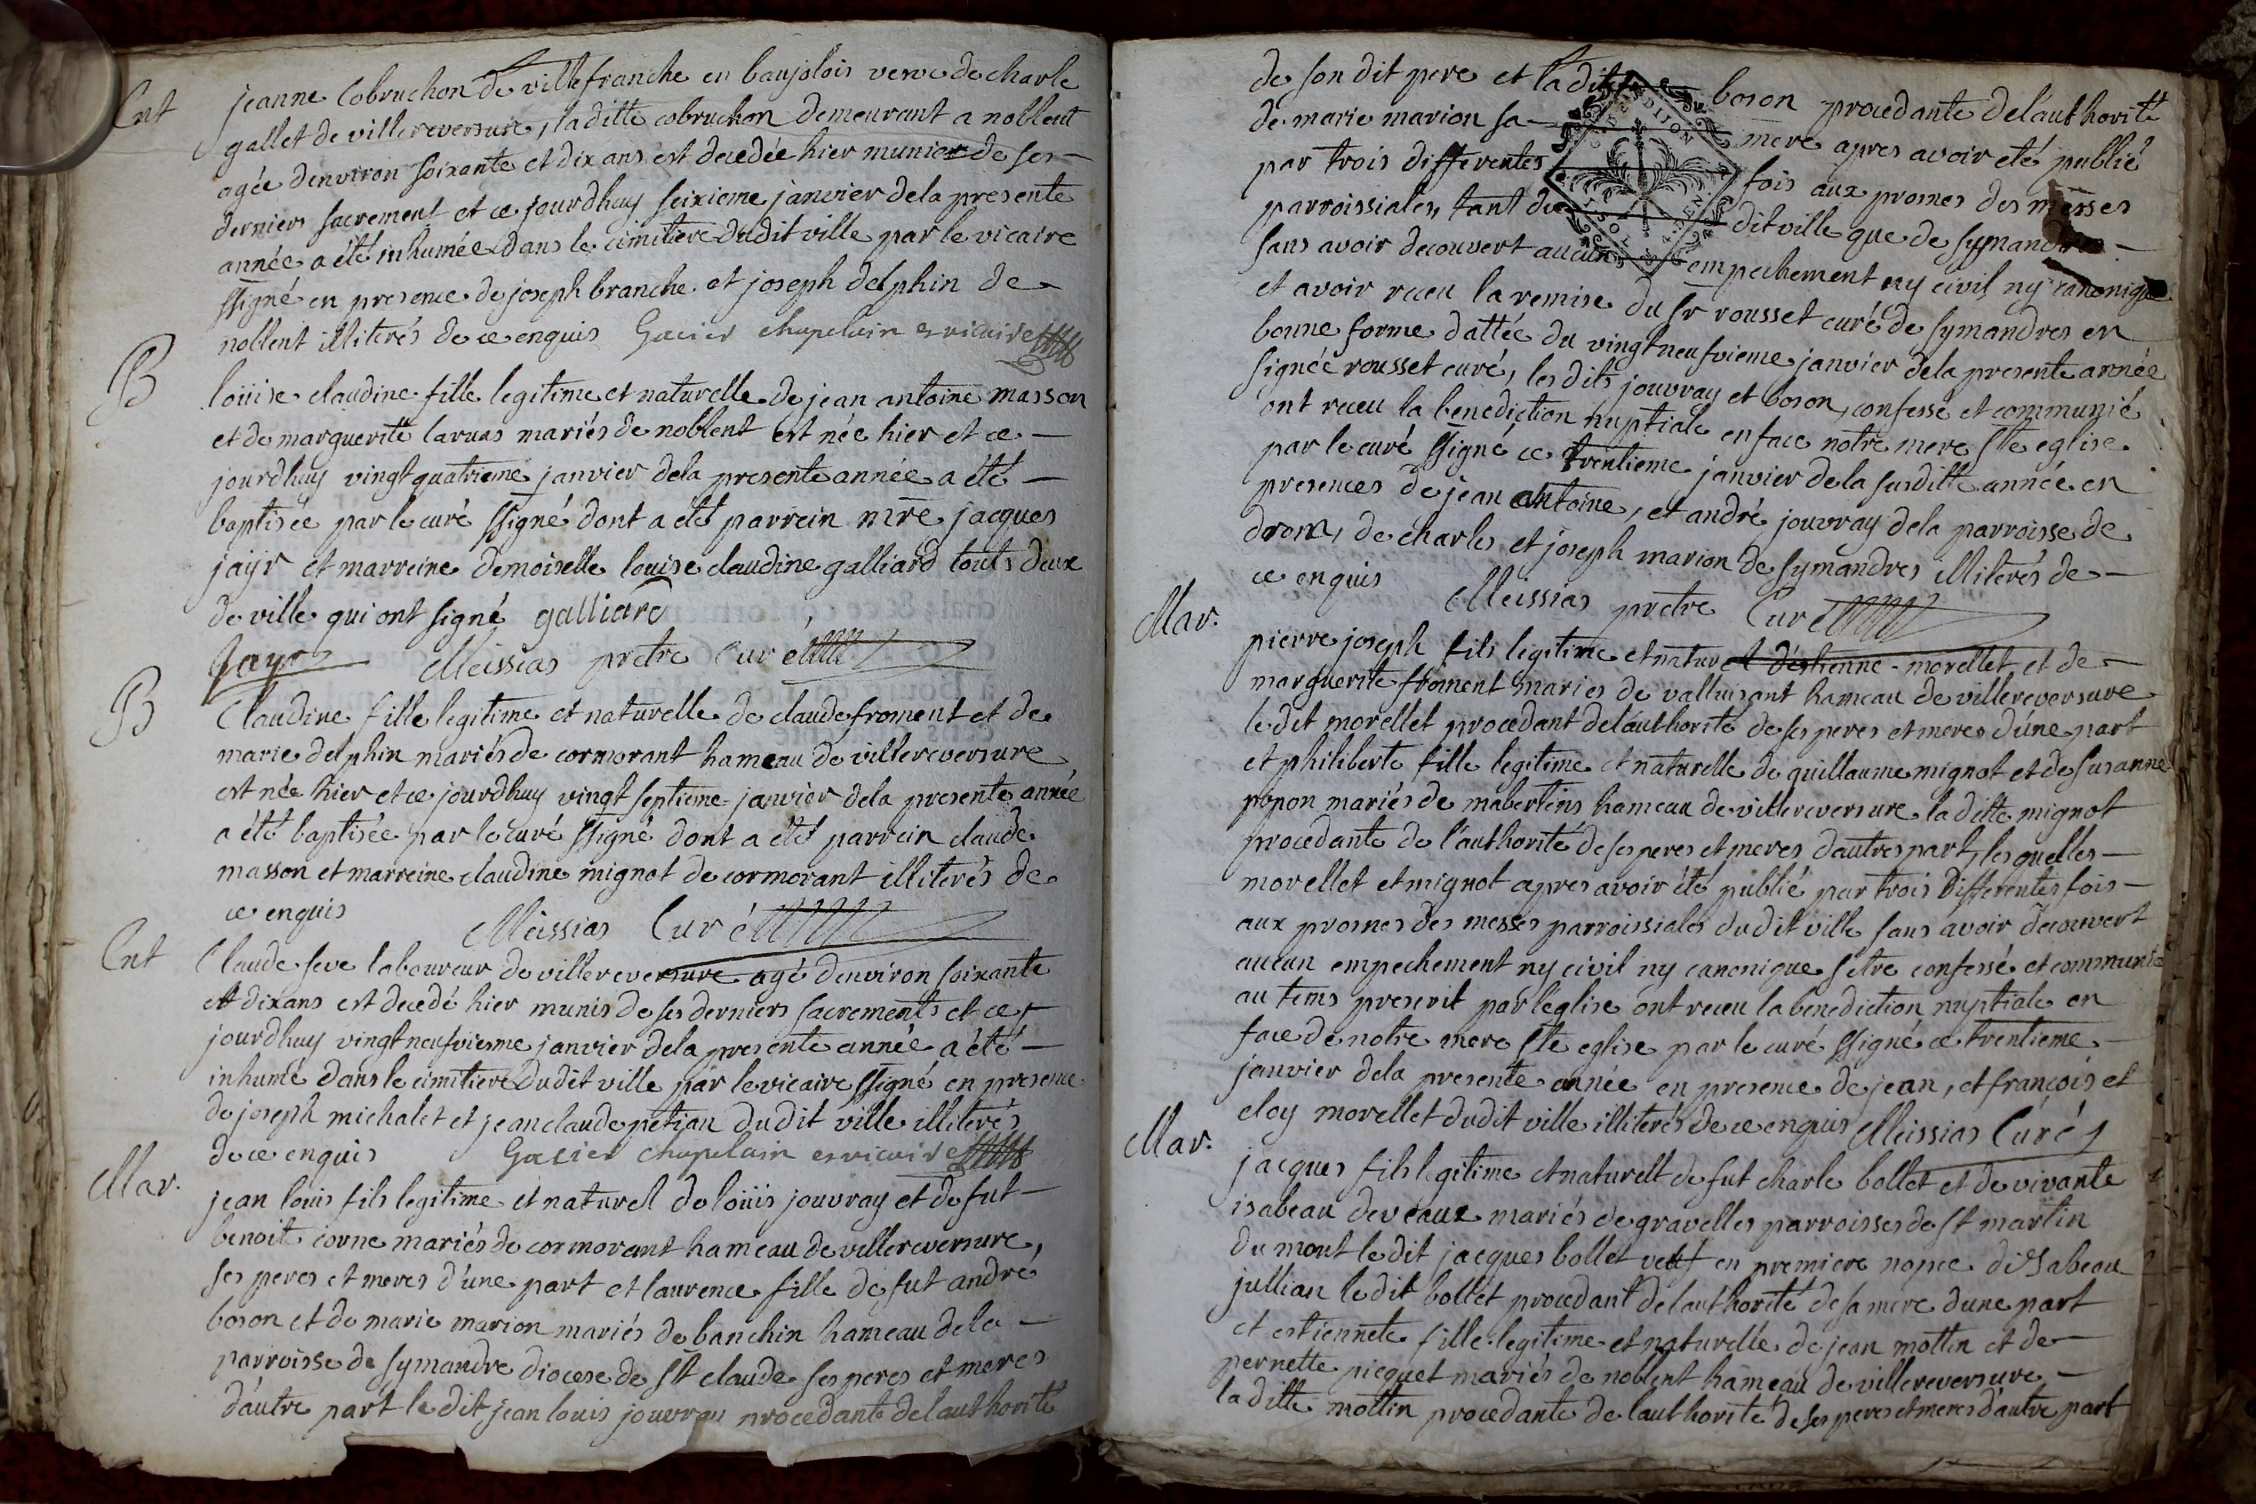 Ent
jeanne Cobruchon de villefranche en baujolois verve de charle
gallet de villereversure, la ditte cobruchon demeurant a noblent
agée denviron soixante et dix ans est decedée hier munier de ses
derniers sacrement et ce jourdhuy seixieme janvier dela presente
année a été inhumée dans le cimitiere dudit ville par le vicaire
ssigné en presence de joseph branche et joseph delphin de
noblent illiterés de ce enquis Gacier chapelain es vicaire
B
loüise claudine fille legitime et naturelle de jean antoine masson
et de marguerite laruas mariés de noblent est née hier et ce
jourdhuy vingt quatrieme janvier dela presente année a été
baptisée par le curé ssigné dont a été parrein mre jacques
jayr et marreine demoiselle louise claudine galliard touts deux
de ville qui ont signé galliard
Jayr Meissias pretre Curé
B
Claudine fille legitime et naturelle de claude froment et de
marie delphin mariés de cormorant hameau de villereversure
est née hier et ce jourdhuy vingt septieme janvier dela presente année
a été baptisée par le curé ssigné dont a été parrein claude
masson et marreine claudine mignot de cormorant illiterés de
ce enquis Meissias Curé
Ent
Claude seve laboureur de villereversure agé denviron soixante
et dix ans est decedé hier munis de ses derniers sacrements et ce
jourdhuy vingt neufvieme janvier dela presente année a été
inhumé dans le cimitiere dudit ville par le vicaire ssigné en presence
de joseph michalet et jean claude petjan dudit ville illiterés
de ce enquis Gacier chapelain es vicaire
Mar.
jean louis fils legitime et naturel de loüis jouvray et de fut
benoite corne mariés de cormorant hameau de villereversure,
ses peres et meres d'une part et laurence fille de fut andré
boson et de marie marion mariés de banchin hameau dela
parroisse de symandre diocese de St claude ses peres et meres
d'autre part le dit jean louis jouvray procedante delauthorité
de son dit pere et la ditte boson procedante delauthorité
de marie marion sa mere apres avoir eté publié
par trois differentes fois aux prosnes des messes
parroissiales, tant du dit ville que de symandres
sans avoir decouvert aucuns empechement ny civil ny canonique
et avoir receu la remise du sr rousset curé de symandres en
bonne forme dattée du vingt neufvieme janvier dela presente année
signée rousset curé, les dits jouvray et boson, confessé et communié
ont receu la benediction nuptiale en face notre mere Ste eglise
par le curé ssigné ce trentieme janvier de la susditte année en
presences de jean antoine, et andré jouvray dela parroisse de
drom, de charles et joseph marion de symandres illiterés de
ce enquis Meissias pretre Curé
Mar.
pierre joseph fils legitime et naturel d'estienne morellet et de
marguerite froment maries de valluisant hameau de villereversure
le dit morellet procedant delauthorité de ses peres et meres d'une part
et philiberte fille legitime et naturelle de guillaume mignot et de susanne
popon mariés de mabertins hameau de villereversure la ditte mignot
procedante de l'authorité de ses peres et meres d'autres part, lesquelles
morellet et mignot apres avoir été publié par trois differentes fois
aux prosnes des messes parroissiales du dit ville sans avoir decouvert
aucun empechement ny civil ny canonique s'etre confessé et communié
au tems prescrit par leglise ont receu la benediction nuptiale en
face de notre mere Ste eglise par le curé ssigné ce trentieme
janvier dela presente année en presence de jean, et françois et
eloy morellet dudit ville illiterés de ce enquis Meissias Curé
Mar.
jacques fils legitime et naturelt de fut charle bollet et de vivante
isabeau deveaux mariés de gravelles parroisses de St martin
du mont le dit jacques bollet veuf en premiere nopce d'isabeau
jullian le dit bollet procedant delauthorité de sa mere dune part
et estiennete fille legitime et naturelle de jean mottin et de
pernette picquet mariés de noblent hameau de villereversure
la ditte mottin procedante de lauthorité de ses peres et meres d'autre part